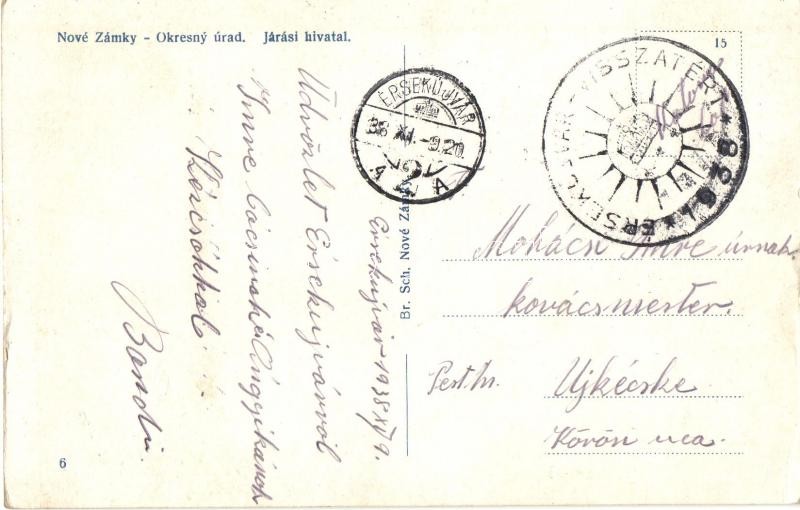 Nové Zámky - Okresný úrad. Járási hivatal.
15
ÉRSEKÚJVÁR
38 XI. -9.20
A A
ÉRSEKÚJVÁR VISSZATÉRT
* 1938 *
Érsekujvár 1938 XI/9.
Üdvözlet Érsekujvárról
Imre bácsinak
Kézcsókkal
Bandi.
Br. Sch. Nové Zámky.
Mohácsi Imre úrnak
kovácsmester.
Pest m. Ujkécske
Kőrösi uca.
6